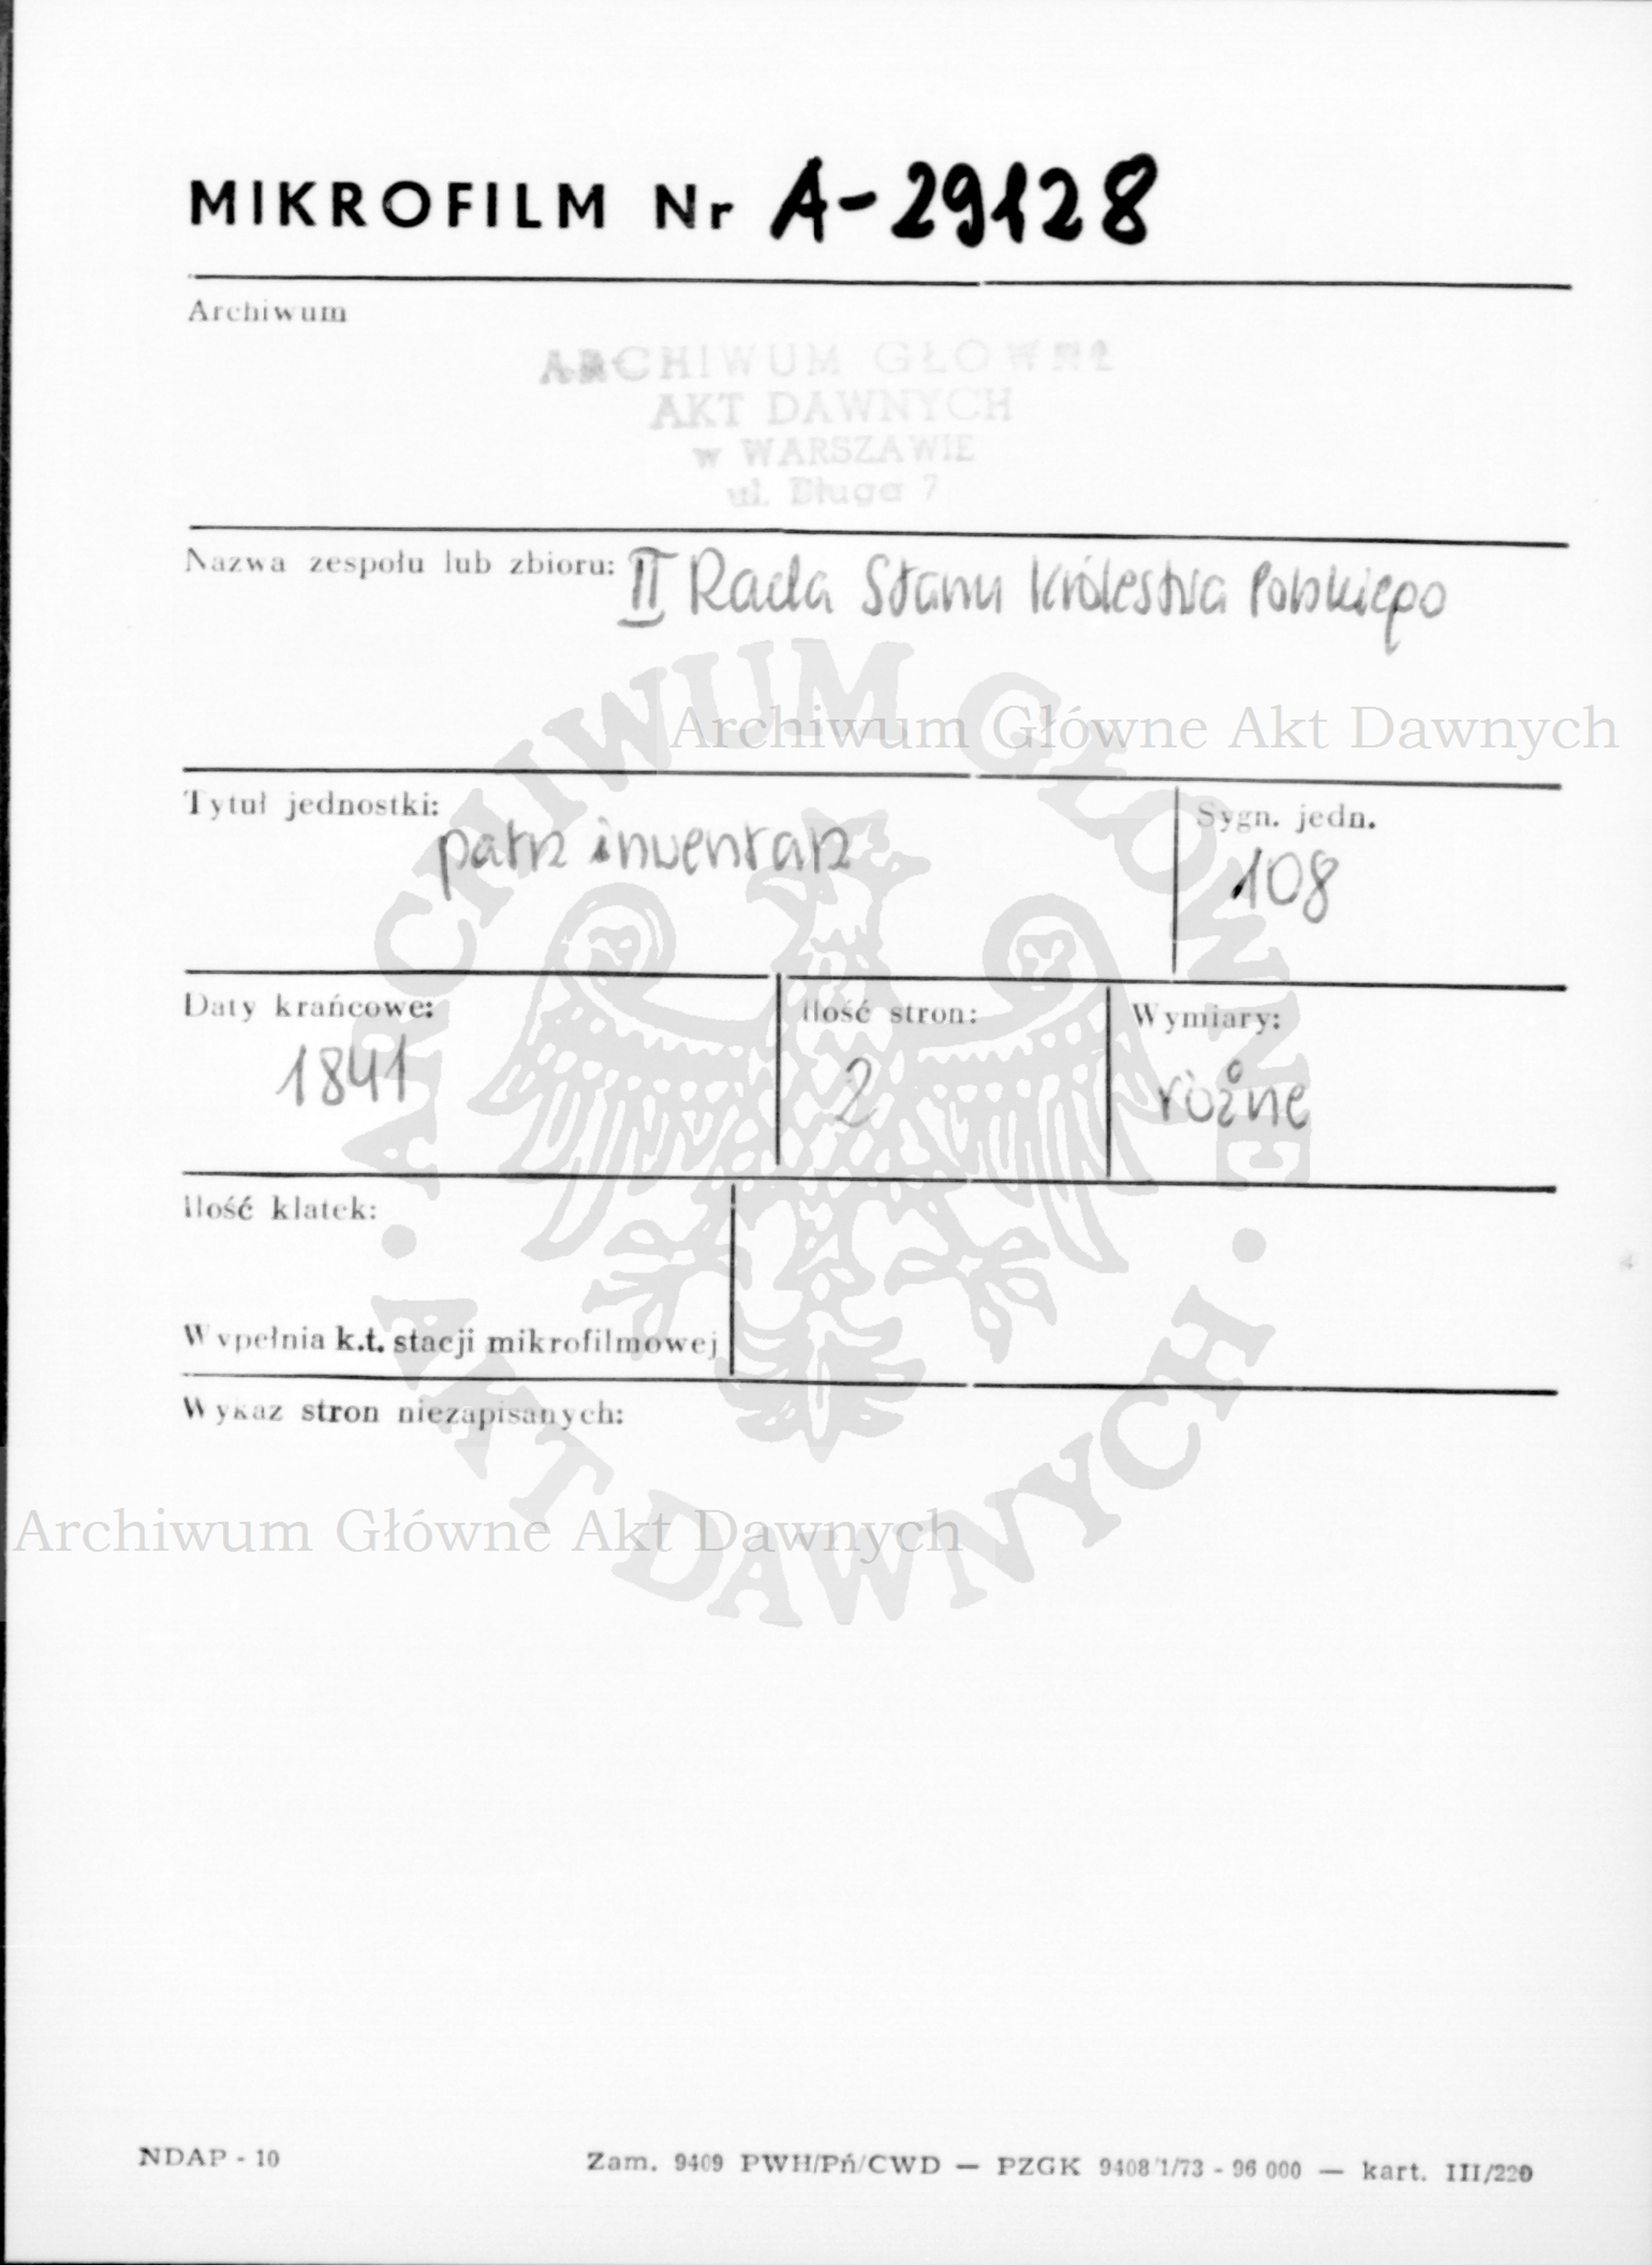 MIKROFILM Nr A-29128
Archiwum
ARCHIWUM GŁOWNE
AKT DAWNYCH
w WARSZAWIE
ul. Długa 7
Nazwa zespołu lub zbioru: II Rada Stanu Królestwa Polskiego
Archiwum Główne Akt Dawnych
ARCHIWUM GŁÓWNE
Tytuł jednostki: patrz inwentarz
Sygn. jedn.
108
Daty krańcowe:
1841
Ilość stron:
2
Wymiary:
różne
Ilość klatek:
Wypełnia k.t. stacji mikrofilmowej
Wykaz stron niezapisanych:
AKT DAWNYCH
Archiwum Główne Akt Dawnych
NDAP - 10
Zam. 9409 PWH/Pń/CWD — PZGK 9408/1/73 - 96 000 — kart. III/220